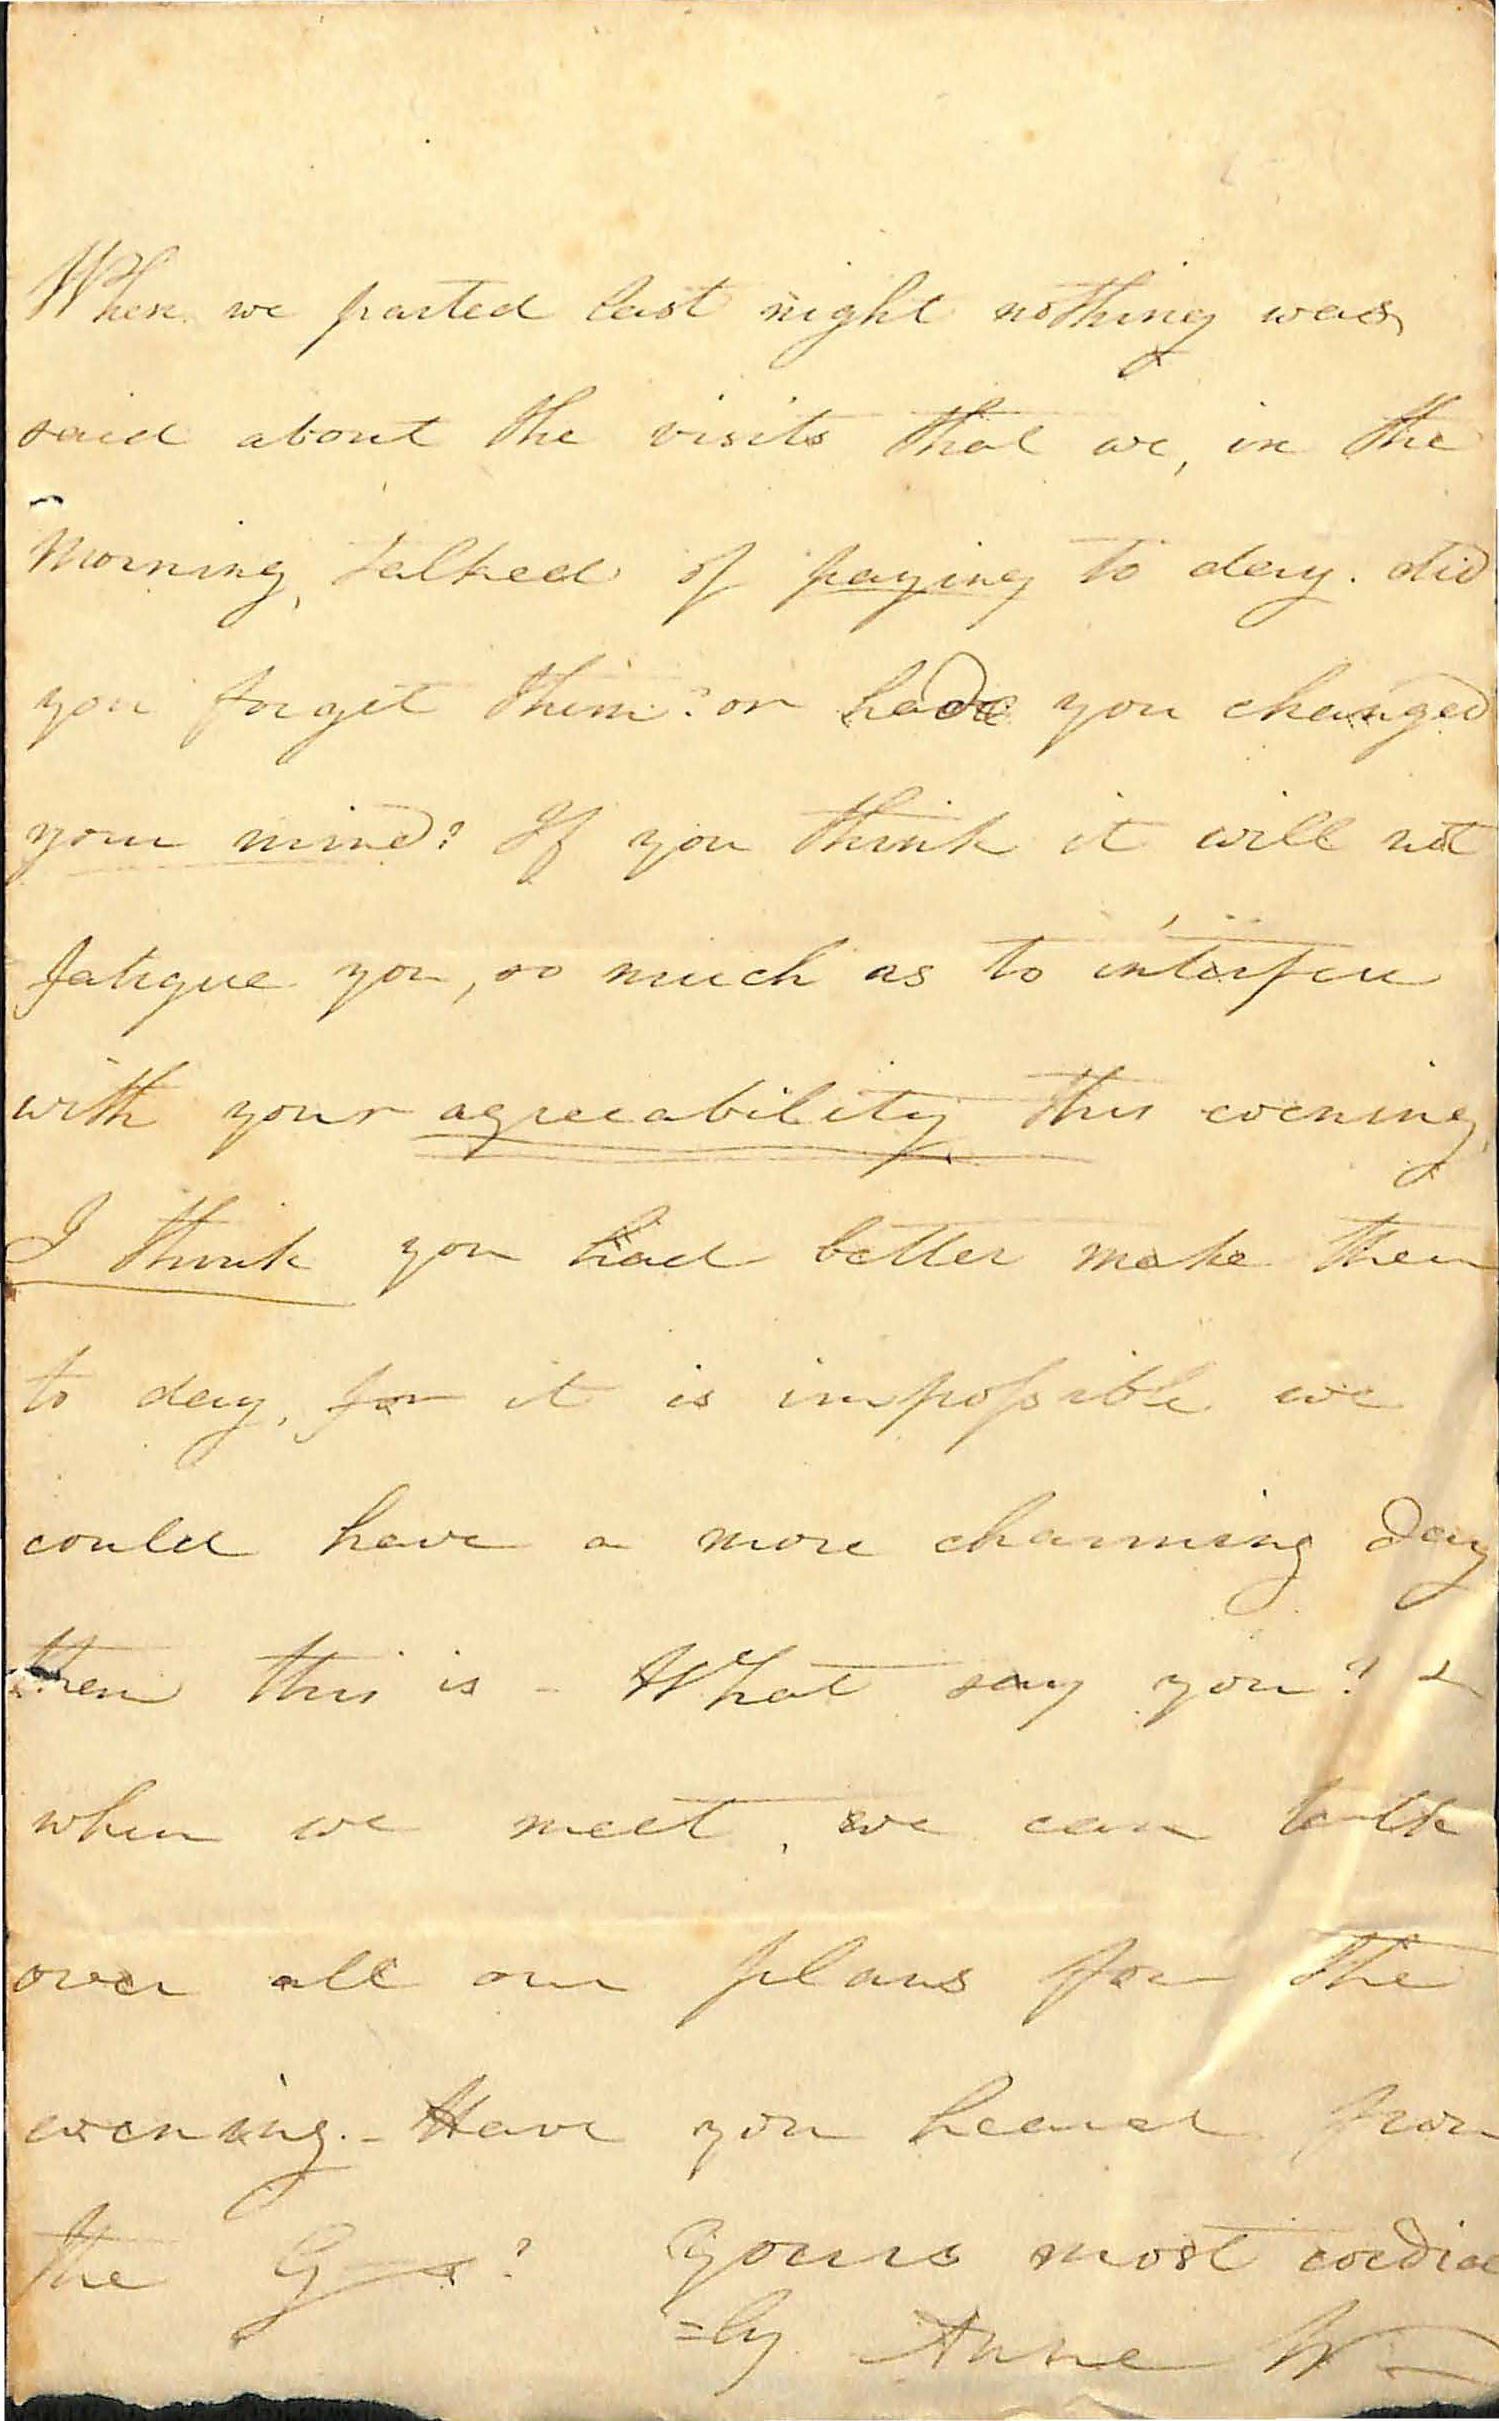 When we parted last night nothing was
said about the visits that we, in the
Morning, talked of paying to day. did
you forget them? or have you changed
your mind? If you think it will not
fatigue you, so much as to interfere
with your agreeability this evening,
I think you had better make them
to day, for it is impossible we
could have a more charming day
then this is - What say you? &
when we meet, we can talk
over all our plans for the
evening. - Have you heard from
the G—s? Yours most cordial
=ly Anne W—